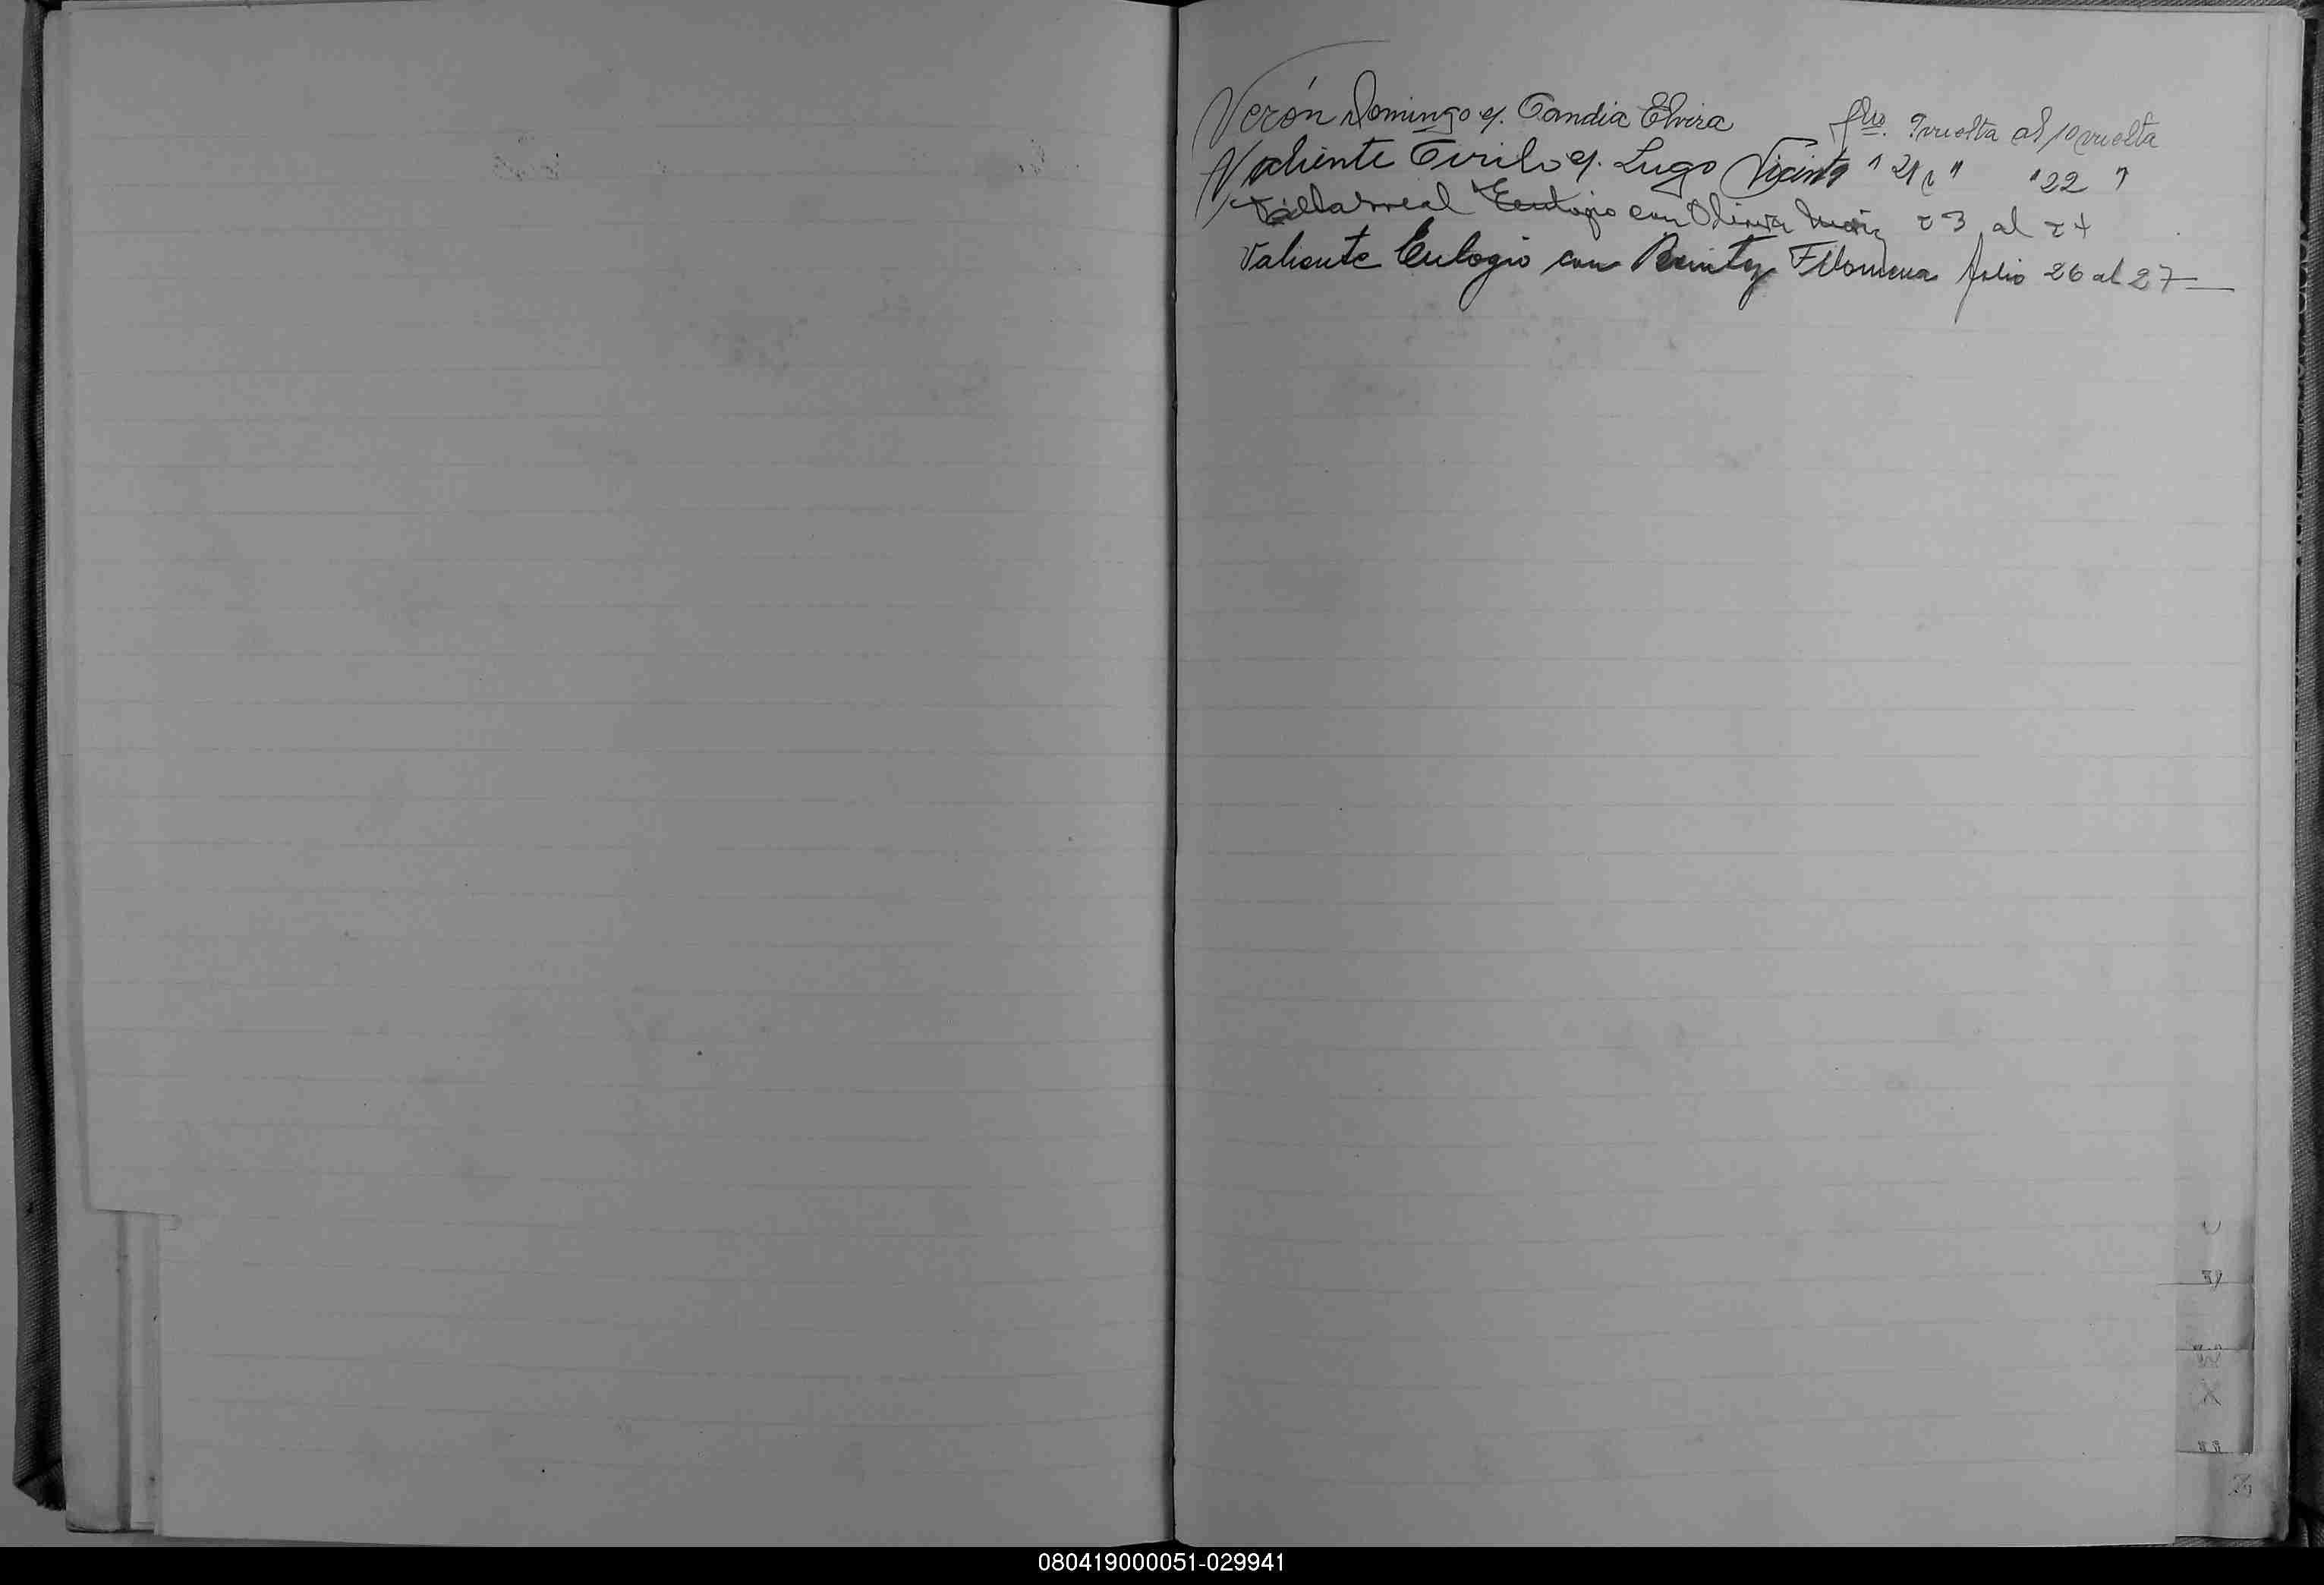 Verón Domingo y. Candia Elvira flio. 9 vuelta al 10 vuelta
Valiente Cirilo y. Lugo Jacinta " 21 v " " 22 "
Villarreal Eulogio con Olinda 23 al 24
Valiente Eulogio con Benitez Filomena folio 26 al 27
X
Z
080419000051-029941